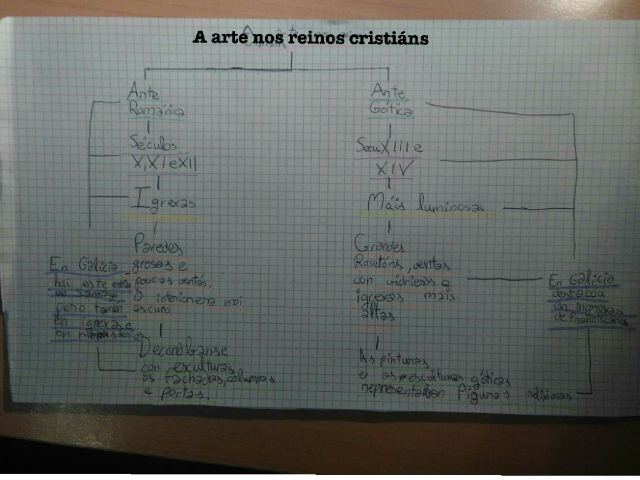 A arte nos reinos cristiáns
Arte
Románica
Séculos
X,XI e XII
Igrexas
Paredes
grosas e
poucas ventás.
O interior era moi
escuro
Decorábanse
con esculturas
as fachadas, columnas
e portas.
En Galicia
hai este arte
en
pero tamén
en igrexas e
en
Arte
Gótica
XIII e
XIV
Máis luminosas
Grandes
Rosetóns, ventas
con vidrieras e
igrexas mais
altas
As pinturas
e as esculturas góticas
representaban figuras relixiosas
En Galicia
destacou
en igrexas